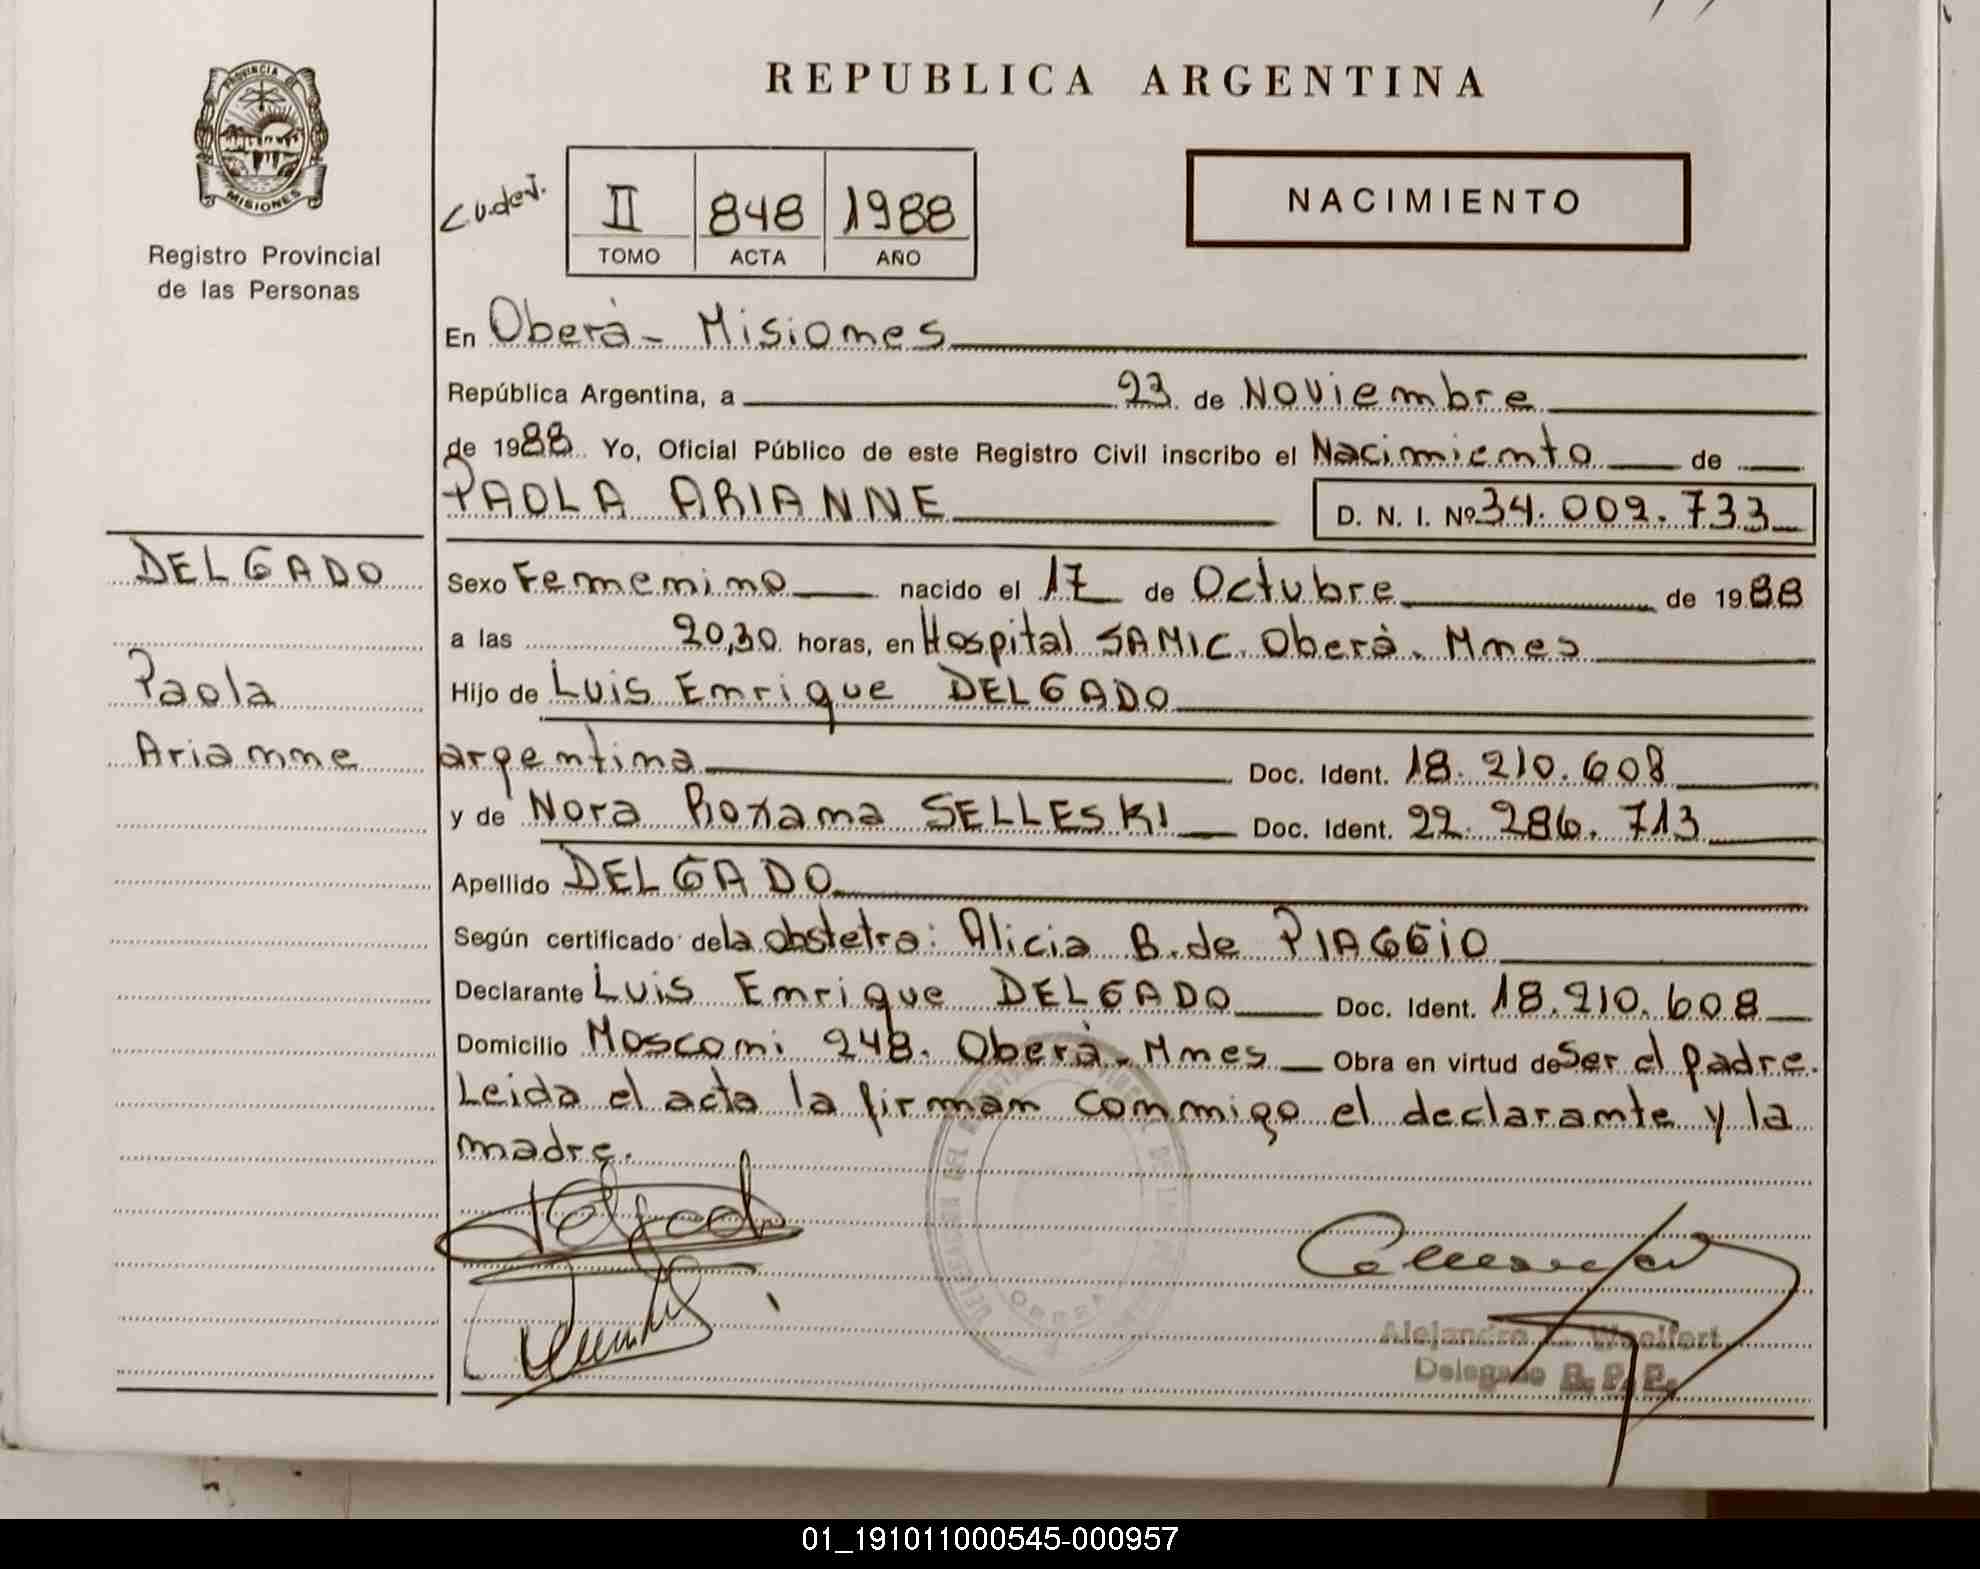 REPUBLICA ARGENTINA
PROVINCIA DE
MISIONES
Registro Provincial
de las Personas
II 848 1988
TOMO ACTA AÑO
NACIMIENTO
En Oberà - Misiones
República Argentina, a 23 de Noviembre
de 1988 Yo, Oficial Público de este Registro Civil inscribo el Nacimiento de
PAOLA ARIANNE D. N. I. Nº 34.009.733
DELGADO
Paola
Arianne
Sexo Femenino nacido el 17 de Octubre de 1988
a las 20,30 horas, en Hospital SAMIC. Oberà. Mnes
Hijo de Luis Enrique DELGADO
argentina Doc. Ident. 18.210.608
y de Nora Roxana SELLESKI Doc. Ident. 22.286.713
Apellido DELGADO
Según certificado de la obstetra: Alicia B. de PIAGGIO
Declarante Luis Enrique DELGADO Doc. Ident. 18.210.608
Domicilio Mosconi 248. Oberà - Mnes Obra en virtud de Ser el padre.
Leida el acta la firman conmigo el declarante y la
madre.
Delgado
OBERA
Alejandro Woelfert
Delegado R. P. P.
01_191011000545-000957